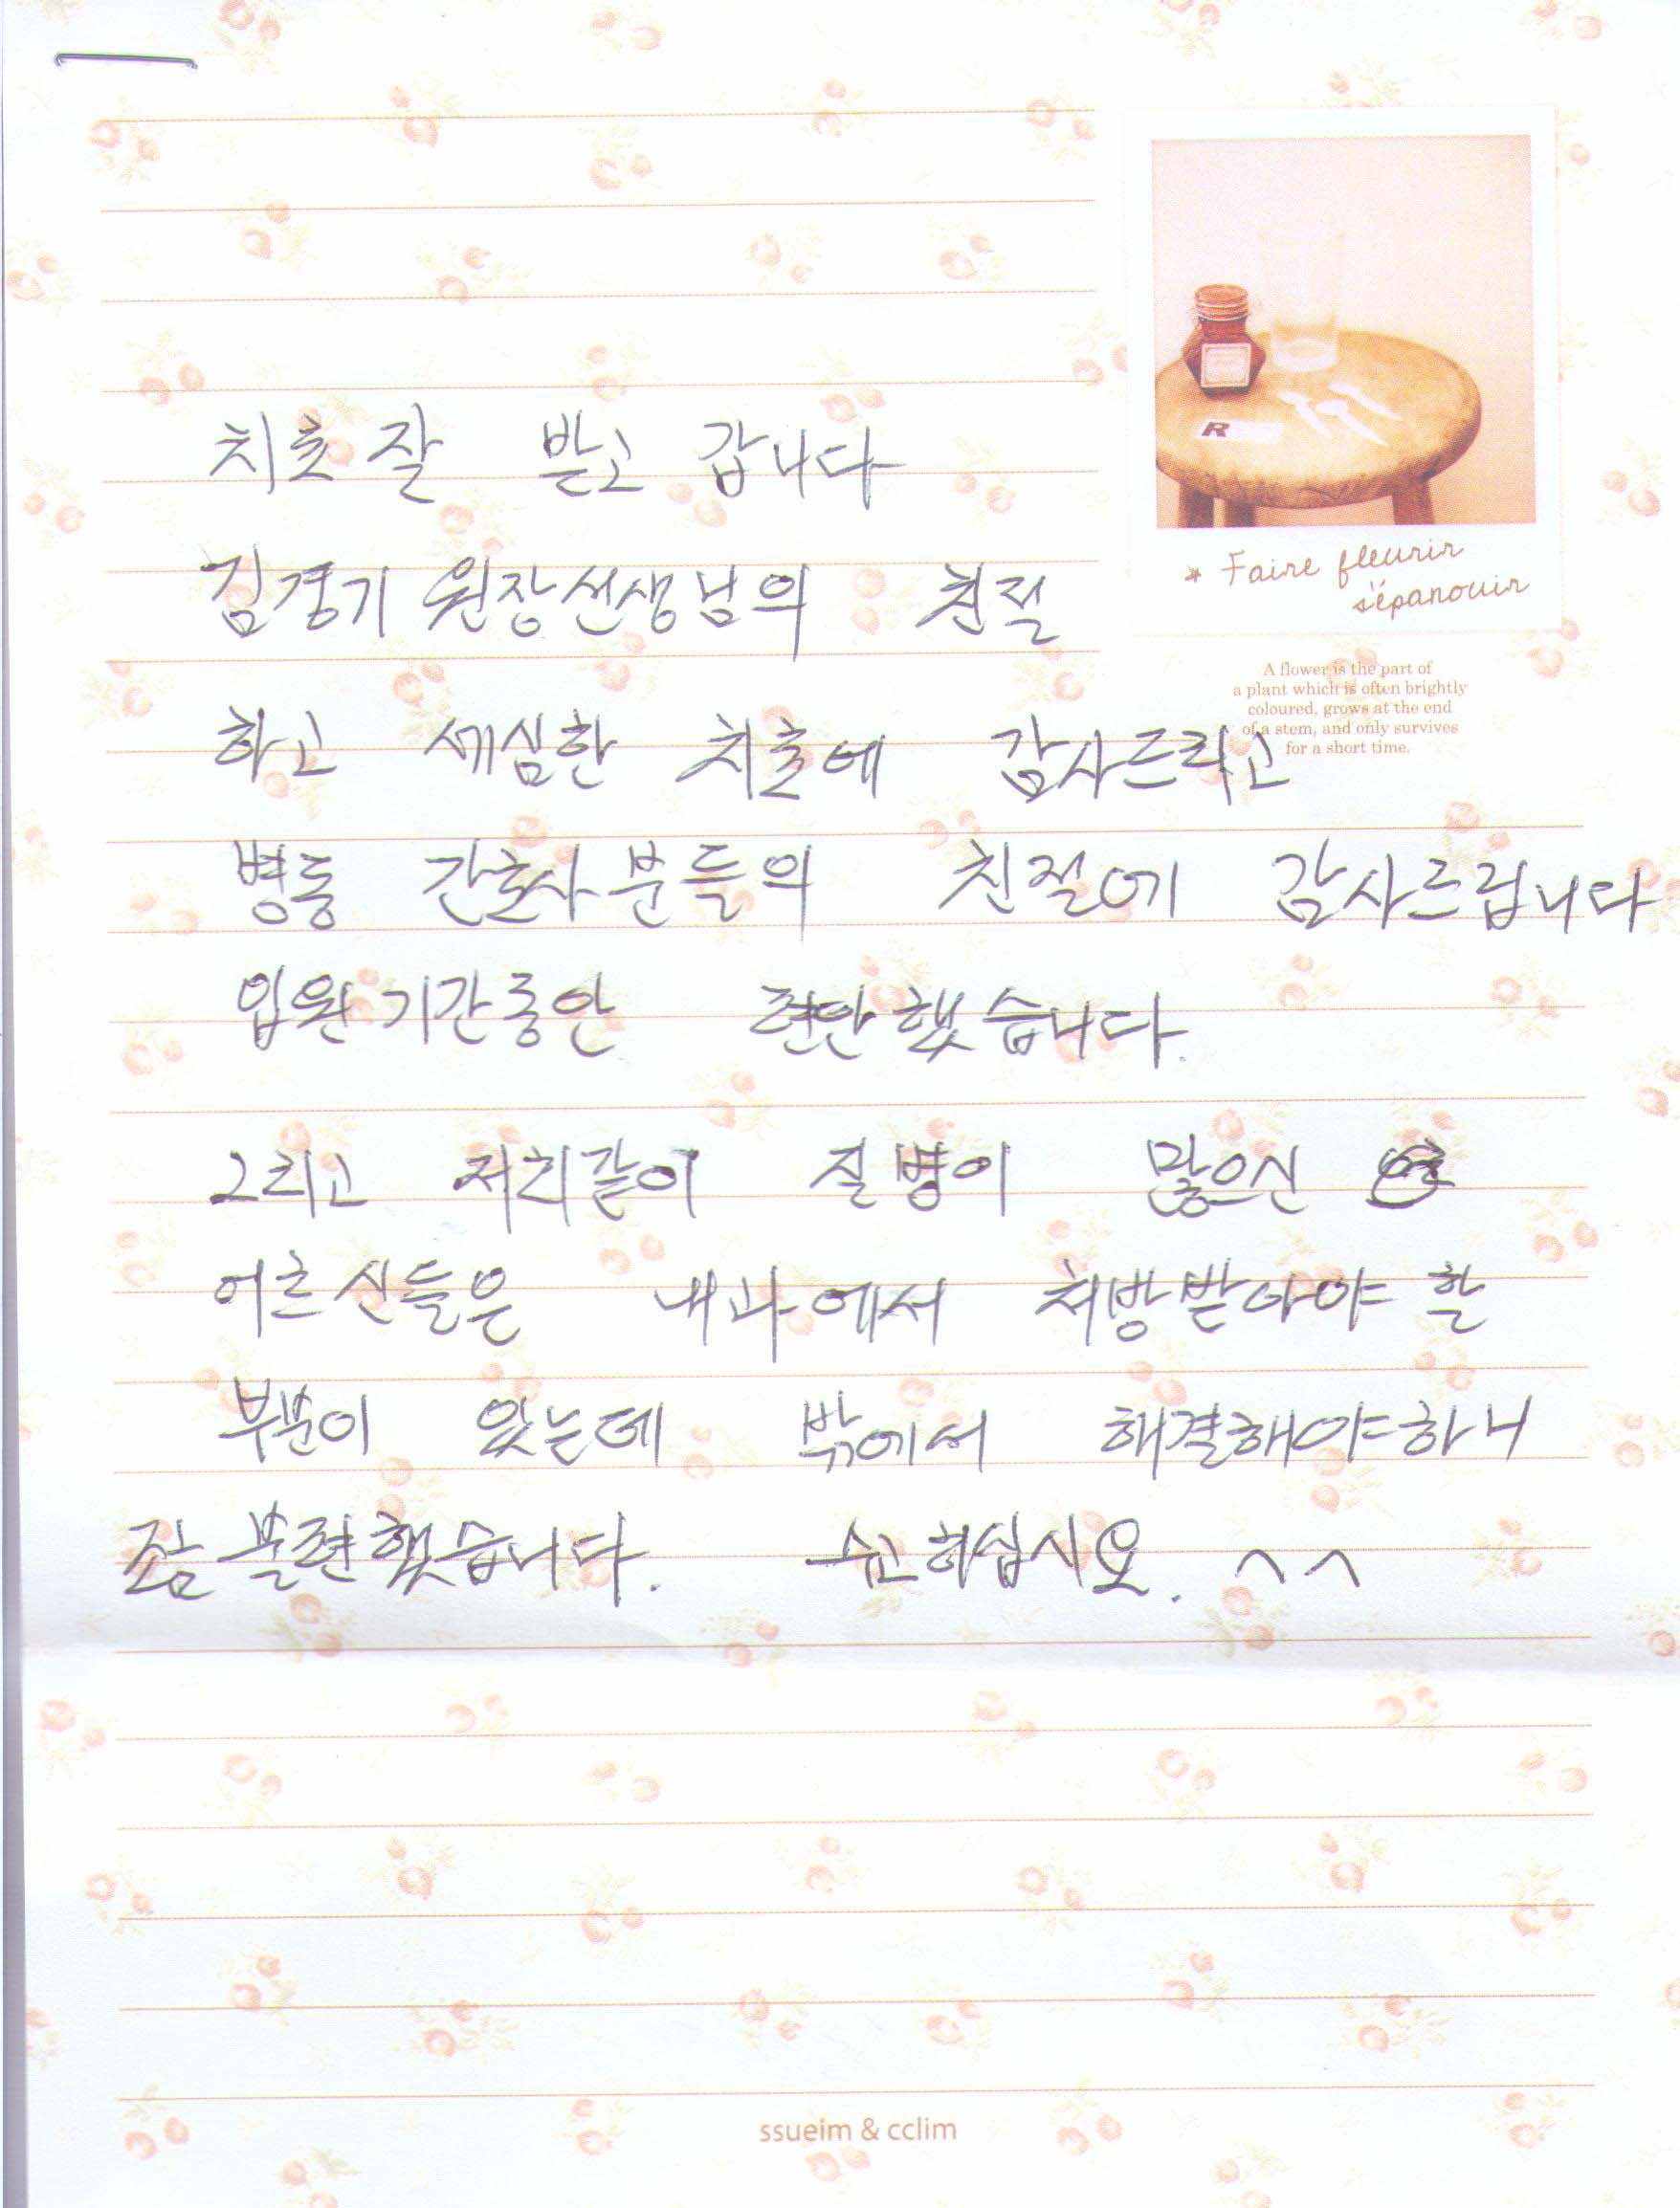 치료 잘 받고 갑니다
김경기 원장선생님의 친절
하고 세심한 치료에 감사드리고
병동 간호사분들의 친절에 감사드립니다
입원기간동안 편안했습니다.
그리고 저희같이 질병이 많으신
어르신들은 내과에서 처방받아야 할
부분이 있는데 밖에서 해결해야하니
조금 불편했습니다. 수고하십시오. ^^
R
* Faire fleurir
s'épanouir
A flower is the part of
a plant which is often brightly
coloured, grows at the end
of a stem, and only survives
for a short time.
ssueim & cclim